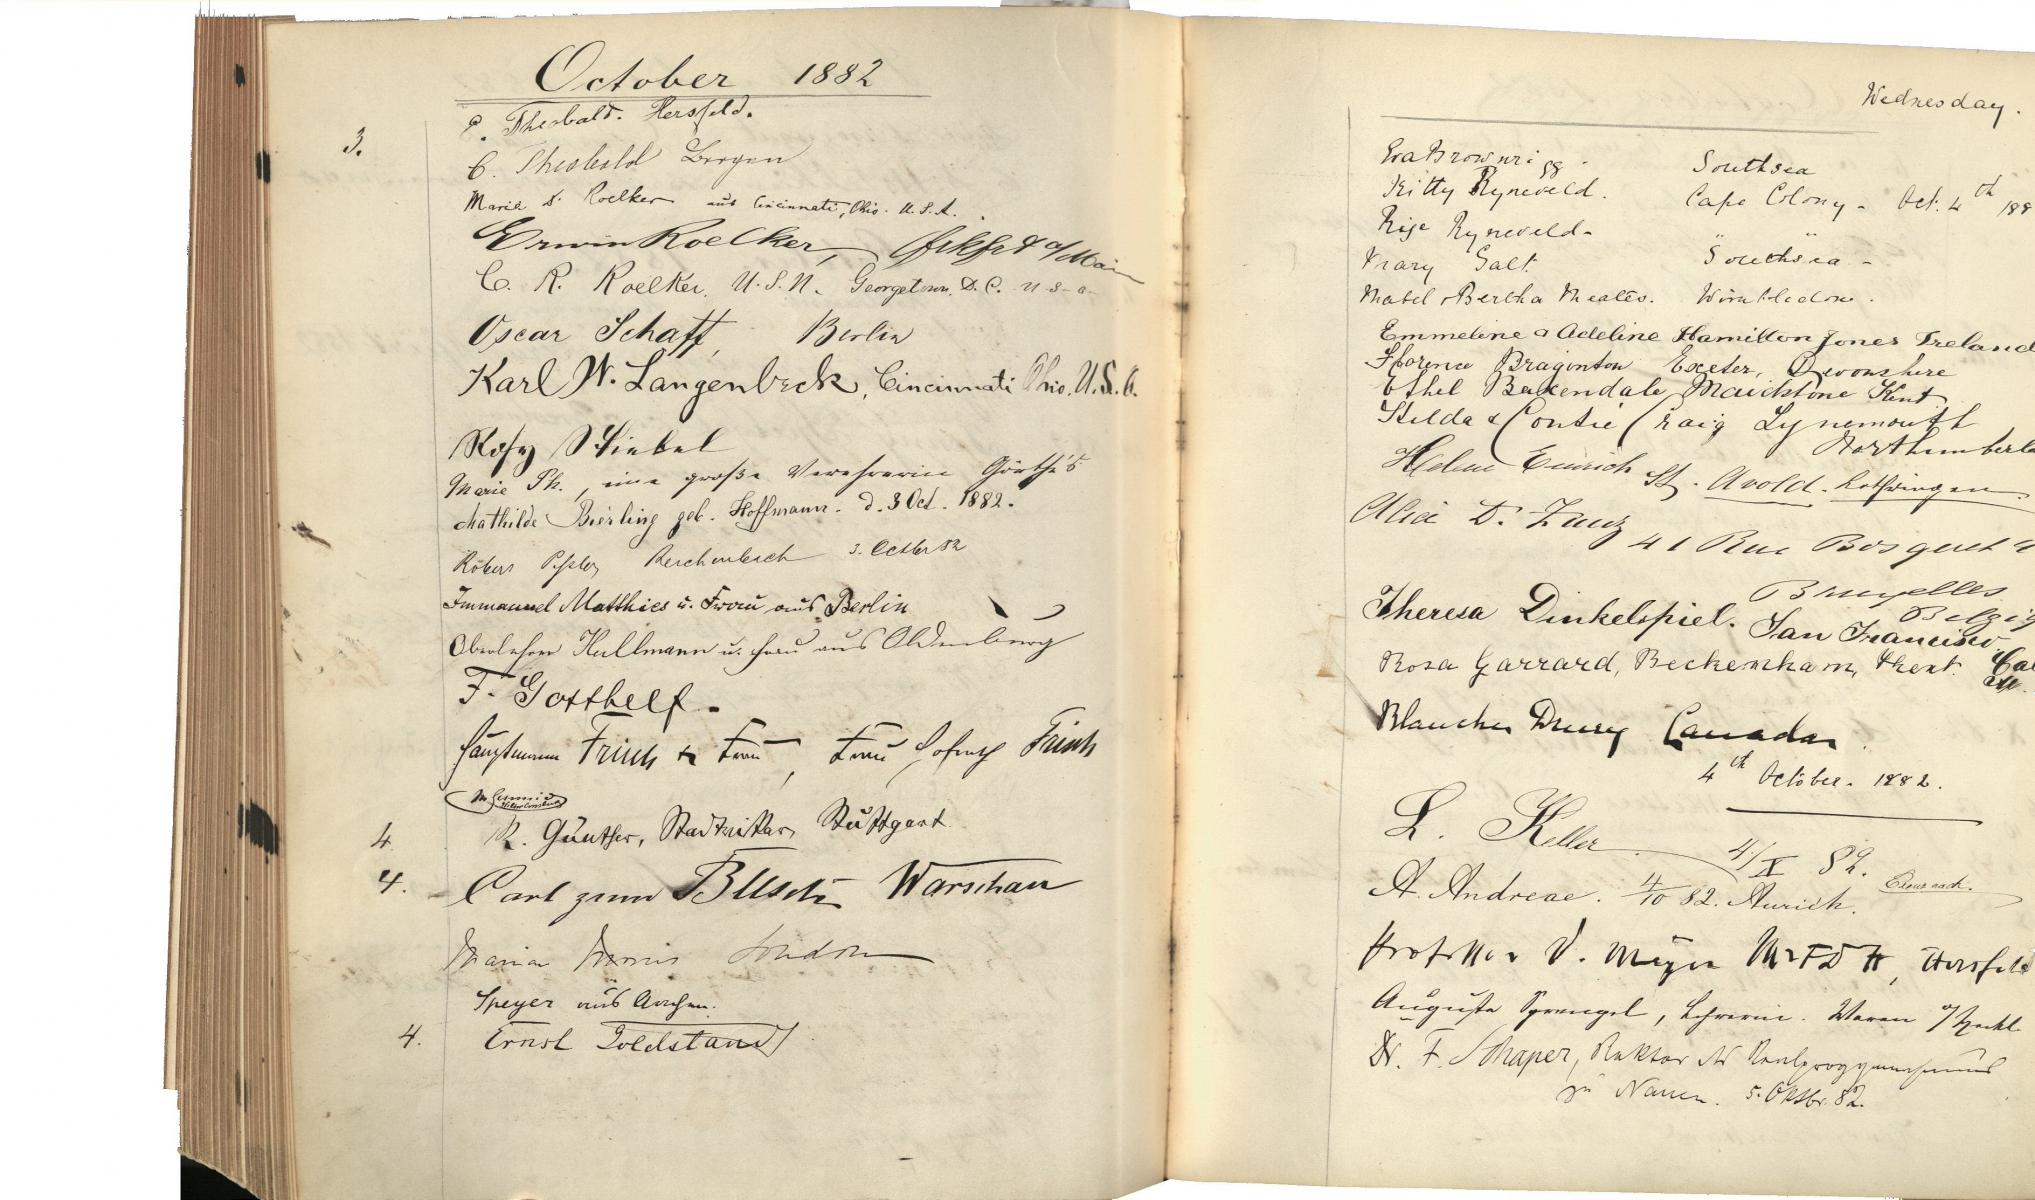 October 1882
3.
E. Theobald. Hersfeld.
C. Theobald Bergen
Marie S. Roelker aus Cincinnati, Ohio. U.S.A.
Erwin Roelker, Frkfrt a/Main
C. R. Roelker. U.S.N. Georgetown. D.C. U-S-a-
Oscar Schaff, Berlin
Karl W. Langenbeck, Cincinnati Ohio. U.S.A.
Rosy Stiebel
Marie Ph., eine große Verehrerin Göethe's
Mathilde Bierling geb. Hoffmann. d. 3 Oct. 1882.
Robert Reichenbach 3. Octbr 82
Immanuel Matthies u. Frau aus Berlin
Oberlehrer Hullmann u. Frau aus Oldenburg
F. Gotthelf.
Hauptmann Frisch & Frau, Frau Frisch
4
R. Günther, Stuttgart
4. Carl zum Busch Warschau
Maria Morris London
Speyer aus Aachen.
4. Ernst Goldstand
Wednesday.
Eva Brownrigg. Southsea
Kitty Ryneveld. Cape Colony - Oct. 4th 188
Ryneveld- " "
Mary Salt. Southsea -
Mabel & Bertha Meates. Wimbledon.
Emmeline & Adeline Hamilton Jones Ireland
Florence Braginton Exeter, Devonshire
Ethel Baxendale Maidstone Kent
Hilda & Contie Craig Lynemouth
Northumberla
Helene Emrich St. Avold. Lothringen.
Alice D. 41 Rue Bosquet
Bruxelles
Belgi
Theresa Dinkelspiel. San Francisco.
Cal
Rosa Garrard, Beckenham, Kent.
Blanche Drury Canada.
4th October. 1882.
L. Keller. 4/X 82.
Creuznach.
A. Andreae. 4/10 82. Aurich.
Professor V. Meyer, Hersfeld
Auguste Sprengel, Lehrerin. Waren a/Meckl.
Dr. F. Schaper, Rektor des Realprogymnasiums
zu Nauen. 5. Oktbr. 82.